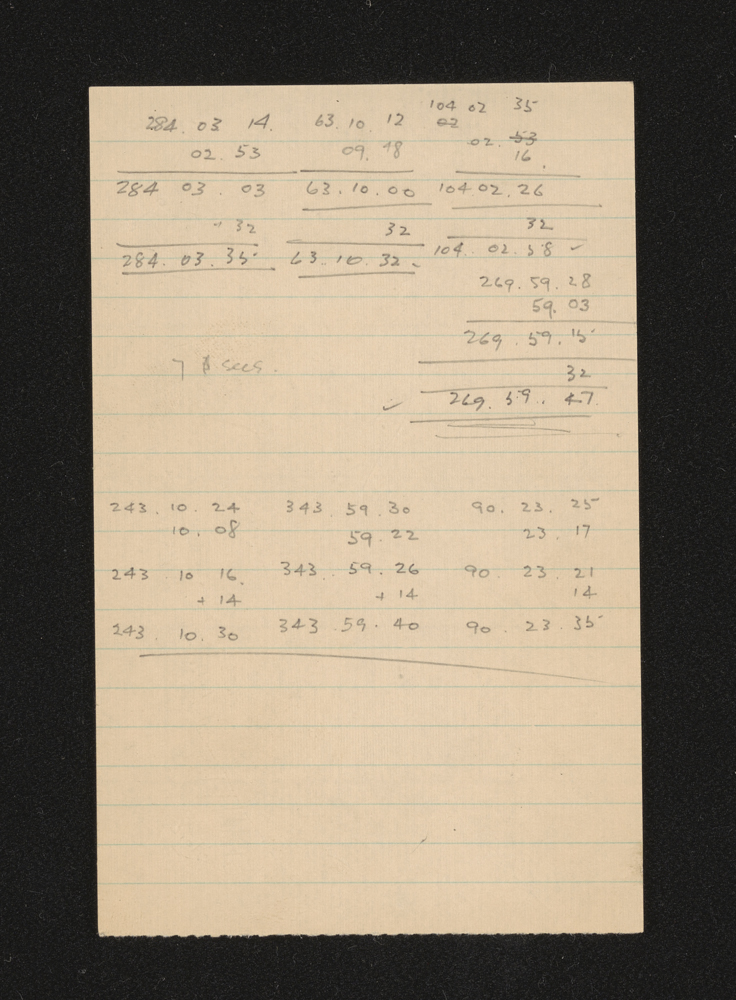 104 02 35
284. 03 14. 63. 10 12 02
02. 53 09. 48 02. 53
16.
284 03. 03 63. 10. 00 104. 02. 26
+ 32 32 32
284. 03. 35 63. 10. 32 104. 02. 58 ✓
269. 59. 28
59. 03
269. 59. 15
7 secs. 32
✓ 269. 59. 47
243. 10. 24 343. 59. 30 90. 23. 25
10. 08 59. 22 23. 17
243 10 16. 343. 59. 26 90. 23. 21
+ 14 + 14 14
243. 10. 30 343. 59. 40 90. 23. 35